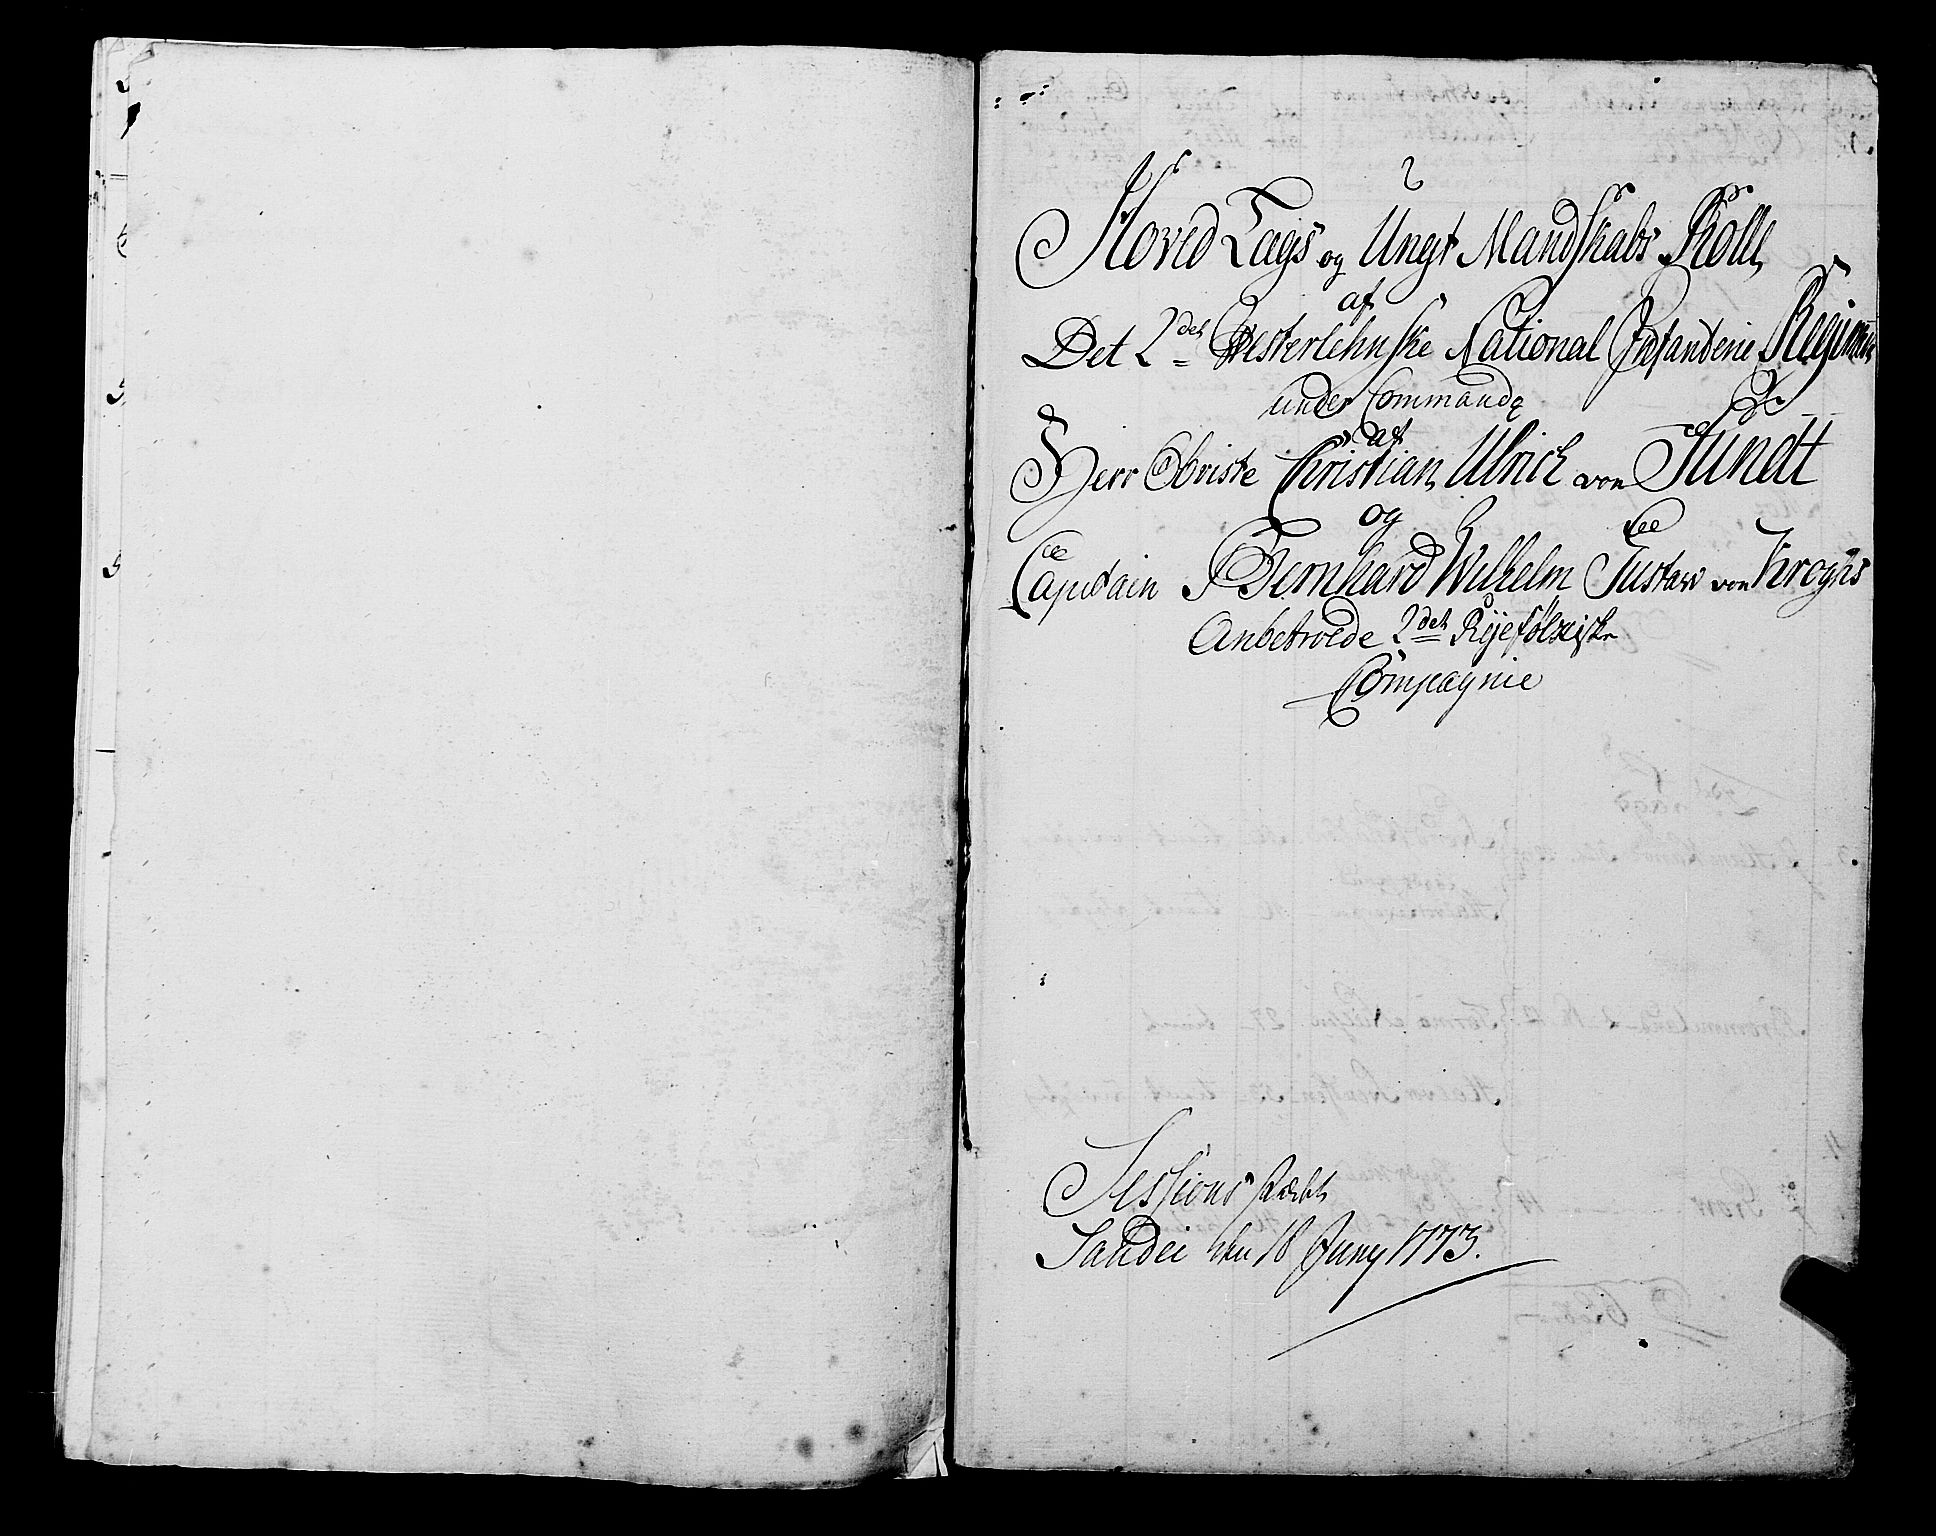 Hoved Lægs og Ungt Mandskabs Rolle
af
Det 2den Westerlehnske National Infanterie Regiment
under Commando
af
Herr Obriste Christian Ulrich von Sundt
og
Capitain Bernhard Wilhelm Gustav von Kroghs
Anbetroede 2den Ryefølkiske
Compagnie
Sessions
Sandei den 18 Juny 1773.